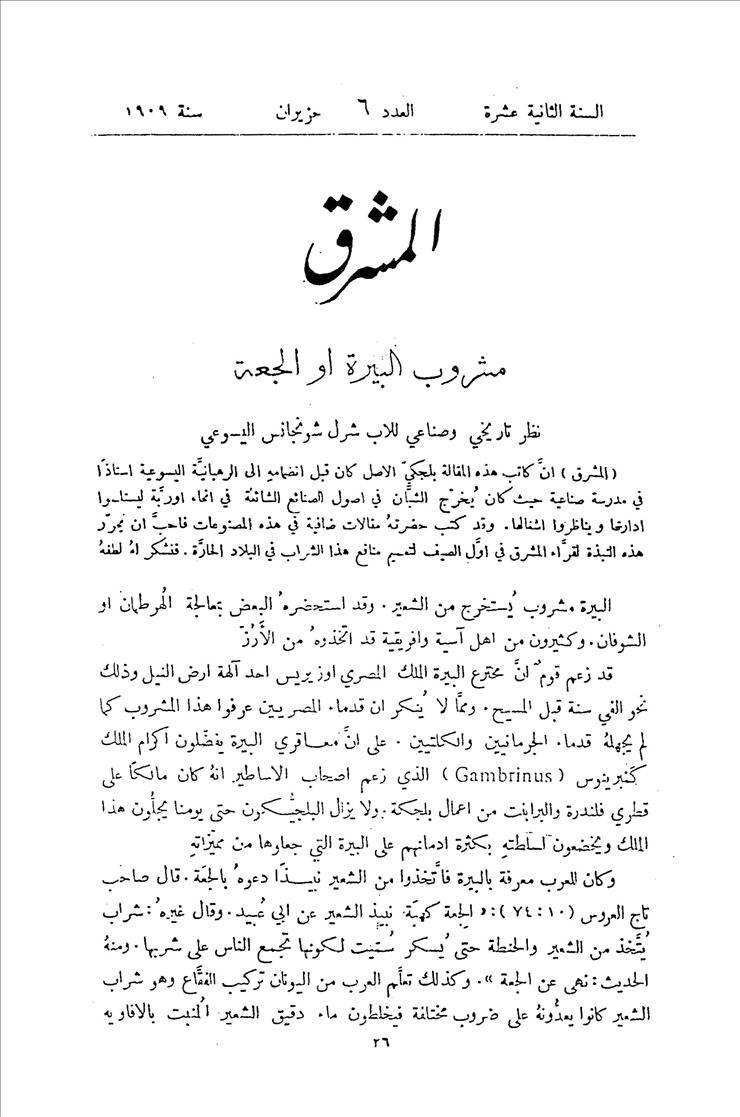 السنة الثانية عشرة العدد ٦ حزيران سنة ١٩٠٩
المشرق
مشروب البيرة او الجعة
نظر تاريخي وصناعي للاب شرل شونجانس اليسوعي
(المشرق) انَّ كاتب هذه المقالة بلجكيّ الاصل كان قبل انضمامهِ الى الرهبانيَّة اليسوعية استاذًا
في مدرسة صناعية حيث كان يُخرّج الشبَّان في اصول الصنائع الشائعة في انحاء اوربَّة ليستلموا
ادارتها ويناظروا اشغالها. وقد كتب حضرتهُ مقالات ضافية في هذه المصنوعات فاحبَّ ان يحرّر
هذه النبذة لقرَّاء المشرق في اوَّل الصيف لتعميم منافع هذا الشراب في البلاد الحارَّة. فنشكر لهُ لطفهُ
البيرة مشروب يُستخرج من الشعير. وقد استحضرهُ البعض بمعالجة الهُرطمان او
الشوفان. وكثيرون من اهل آسية وافريقية قد اتخذوهُ من الأَرُزّ
قد زعم قومٌ انَّ مخترع البيرة الملك المصري اوزيريس احد آلهة ارض النيل وذلك
نحو الفي سنة قبل المسيح. وممَّا لا يُنكر ان قدماء المصريين عرفوا هذا المشروب كما
لم يجهلهُ قدماء الجرمانيين والكلتيين. على انَّ معاقري البيرة يفضّلون اكرام الملك
كَمْبرينوس (Gambrinus) الذي زعم اصحاب الاساطير انهُ كان مالكًا على
قطري فلندرة والبرابنت من اعمال بلجكة. ولا يزال البلجيُّكون حتى يومنا يجلُّون هذا
الملك ويخضعون لسلطتهِ بكثرة ادمانهم على البيرة التي جعلوها من مميّزاتهِ
وكان للعرب معرفة بالبيرة فاتَّخذوا من الشعير نبيذًا دعوهُ بالجعَة. قال صاحب
تاج العروس (١٠:٧٤): «الجعة كهبَة نبيذ الشعير عن ابي عُبيد. وقال غيرهُ: شراب
يُتَّخذ من الشعير والحنطة حتى يُسكر سُمّيت لكونها تجمع الناس على شربها. ومنهُ
الحديث: نهى عن الجعة». وكذلك تعلَّم العرب من اليونان تركيب الفقَّاع وهو شراب
الشعير كانوا يعدُّونهُ على ضروب مختلفة فيخلطون ماء دقيق الشعير المُنبت بالافاويه
٢٦